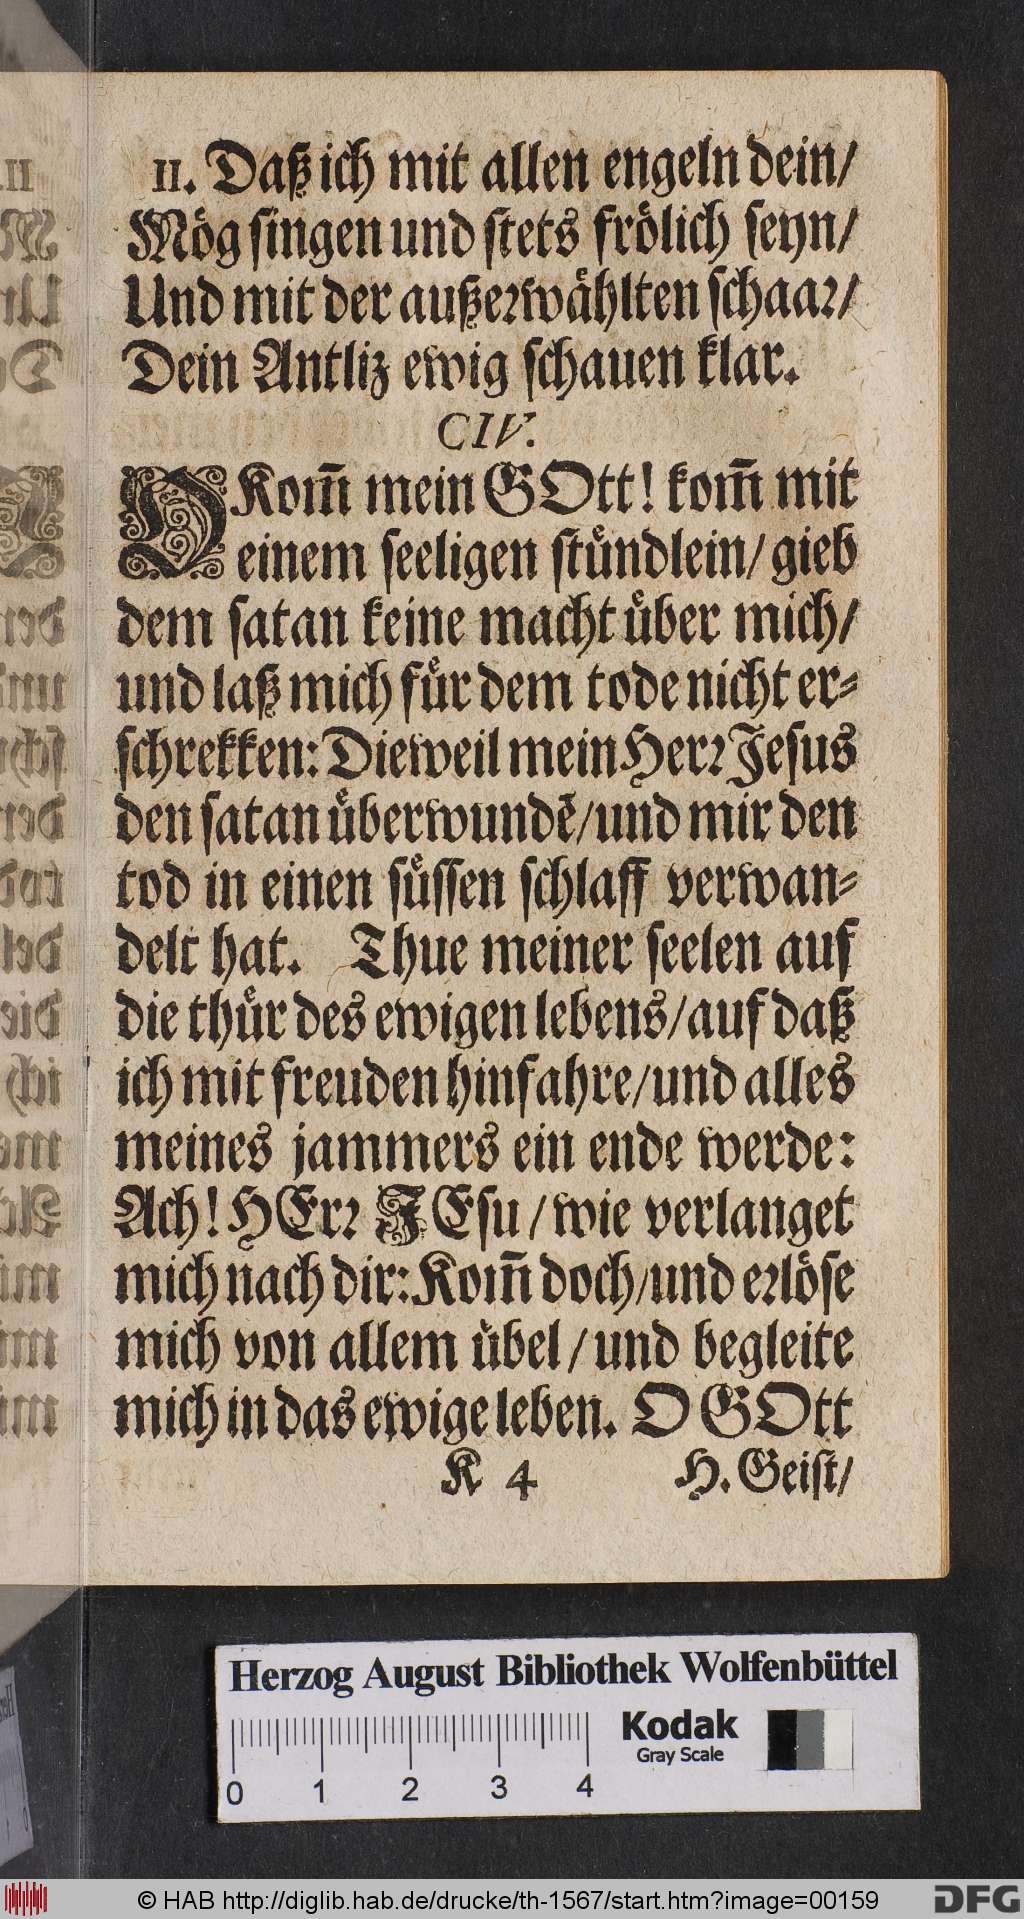 11. Daß ich mit allen engeln dein/
Mög singen und stets frölich seyn/
Und mit der außerwählten schaar/
Dein Antliz ewig schauen klar.
CIV.
O Kom̄ mein GOtt! kom̄ mit
einem seeligen stündlein/ gieb
dem satan keine macht über mich/
und laß mich für dem tode nicht er-
schrekken: Dieweil mein Herr Jesus
den satan überwundē/ und mir den
tod in einen süssen schlaff verwan-
delt hat. Thue meiner seelen auf
die thür des ewigen lebens/ auf daß
ich mit freuden hinfahre/ und alles
meines jammers ein ende werde:
Ach! HErr JEsu/ wie verlanget
mich nach dir: Kom̄ doch/ und erlöse
mich von allem übel/ und begleite
mich in das ewige leben. O GOtt
K 4 H. Geist/
Herzog August Bibliothek Wolfenbüttel
Kodak
Gray Scale
0 1 2 3 4
© HAB http://diglib.hab.de/drucke/th-1567/start.htm?image=00159
DFG